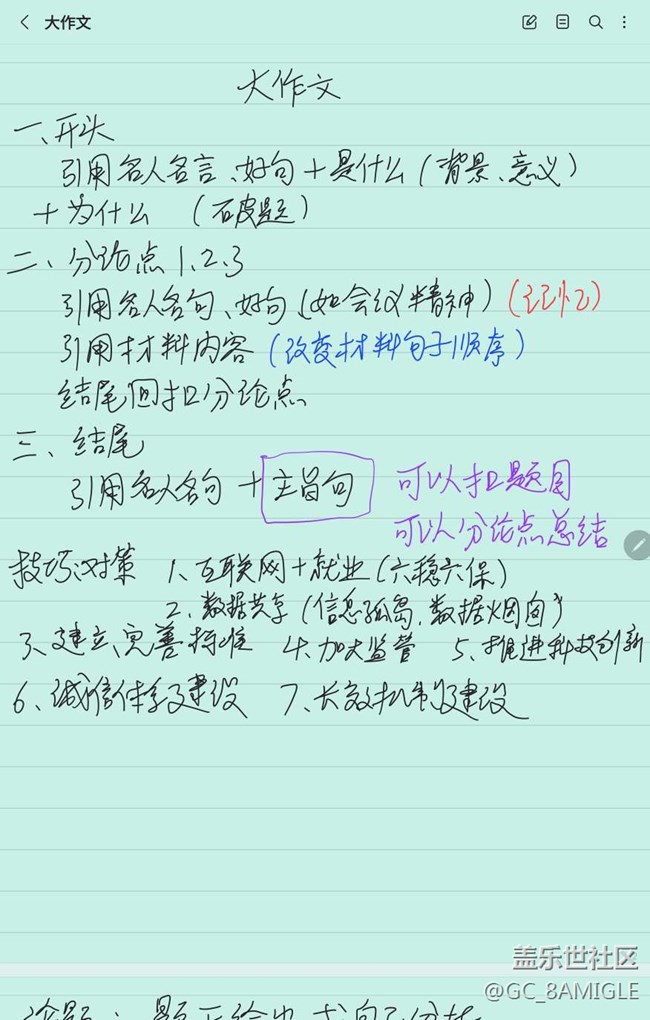 大作文
大作文
一、开头
引用名人名言、好句+是什么(背景、意义)
+为什么 (破题)
二、分论点1、2、3
引用名人名句、好句(如会议精神)(记忆)
引用材料内容(改变材料句子顺序)
结尾回扣分论点
三、结尾
引用名人名句+主旨句 可以扣题目
可以分论点总结
技巧:对策 1、互联网+就业(六稳六保)
2、数据共享(信息孤岛、数据烟囱)
3、建立、完善标准 4、加大监管 5、推进科技创新
6、诚信体系建设 7、长效机制建设
盖乐世社区
@GC_8AMIGLE